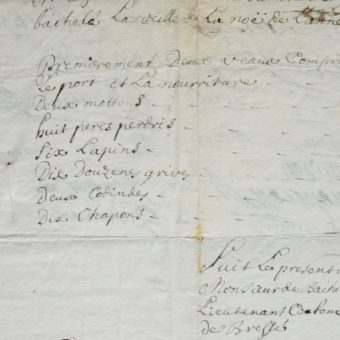 bachelé La veille de La noë de Lannee
Premierement Deux veaux Compris
Le port et La nourriture
Deux mottons
huit peres perdris
Six Lapins
Dix Douzenes grives
Deux Codindes
Dix Chapons
Suit Le present
Monsieur de Bache
Lieutenant Colone
de Bresses